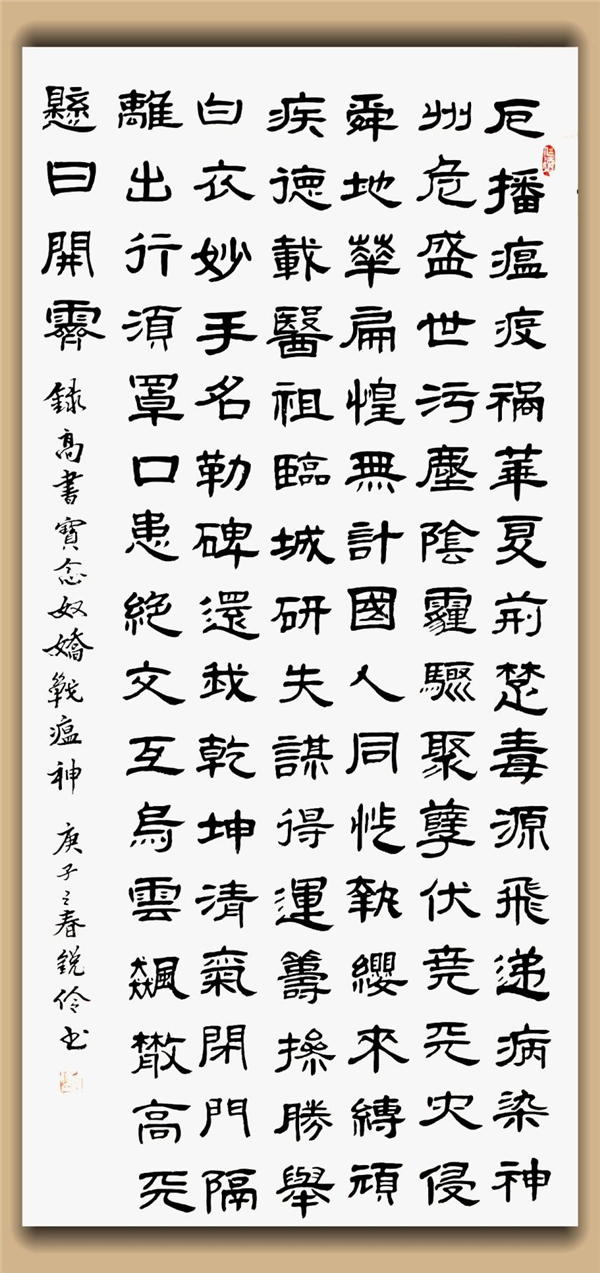 厄播瘟疫祸華夏荊楚毒源飛递病染神
州危盛世污塵陰霾驟聚孽伏堯天火侵
舜地華扁惶無計國人同忾執纓來縛頑
疾德載醫祖臨城研失謀得運籌操勝舉
白衣妙手名勒碑還我乾坤清氣閉門隔
離出行須罩口患絕交互烏雲飆散高天
懸日開霽 錄高書寶念奴嬌戰瘟神 庚子之春銳伶书